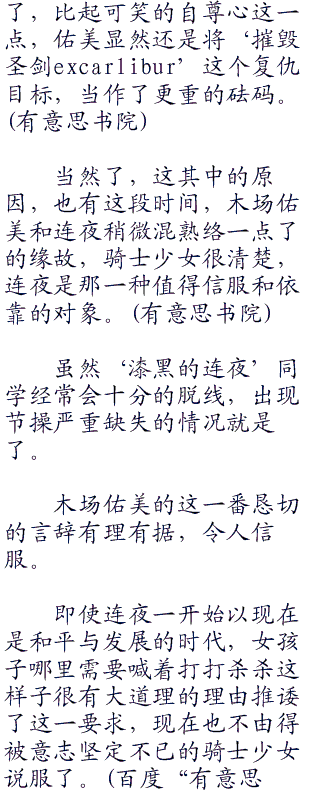 了，比起可笑的自尊心这一
点，佑美显然还是将‘摧毁
圣剑excarlibur’这个复仇
目标，当作了更重的砝码。
(有意思书院)
当然了，这其中的原
因，也有这段时间，木场佑
美和连夜稍微混熟络一点了
的缘故，骑士少女很清楚，
连夜是那一种值得信服和依
靠的对象。(有意思书院)
虽然‘漆黑的连夜’同
学经常会十分的脱线，出现
节操严重缺失的情况就是
了。
木场佑美的这一番恳切
的言辞有理有据，令人信
服。
即使连夜一开始以现在
是和平与发展的时代，女孩
子哪里需要喊着打打杀杀这
样子很有大道理的理由推诿
了这一要求，现在也不由得
被意志坚定不已的骑士少女
说服了。(百度“有意思